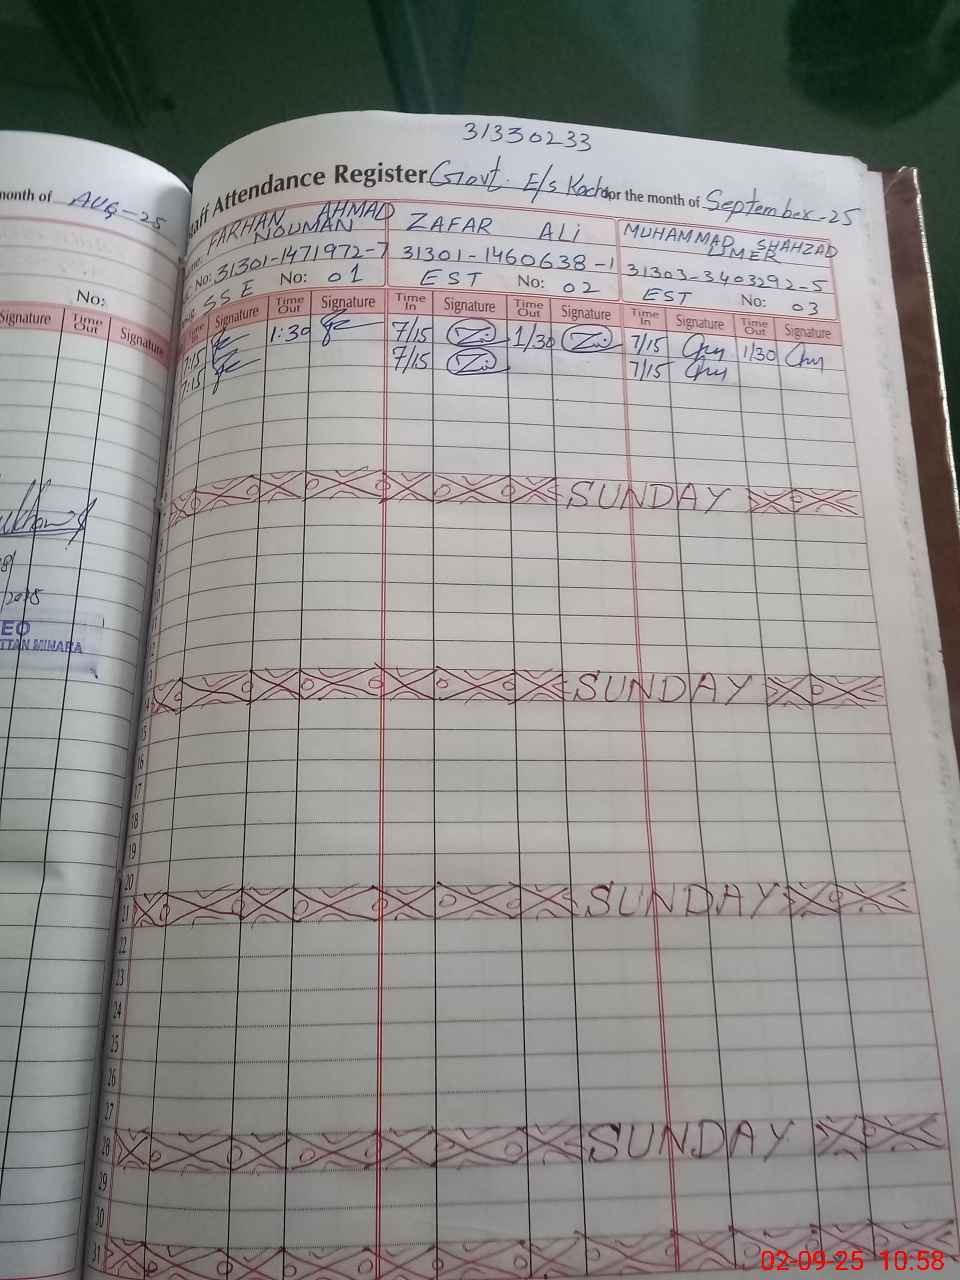 31330233
Staff Attendance Register Govt. E/s for the month of September-25
month of AUG-25
FARHAN AHMAD NOUMAN
ZAFAR ALi
MUHAMMAD SHAHZAD UMER
No: 31301-1471972-7
31301-1460638-1
31303-3403292-5
SSE No: 01
EST No: 02
EST No: 03
No:
Signature Time Out Signature
Time In Signature Time Out Signature Time In Signature Time Out Signature Time In Signature Time Out Signature
7:15 1:30 7/15 1/30 7/15 1/30
7:15 7/15 7/15
SUNDAY
EO
TTAN MINARA
SUNDAY
15
16
17
18
19
20
SUNDAY
21
22
23
24
25
26
27
28 SUNDAY
29
30
31
02-09-25 10:58